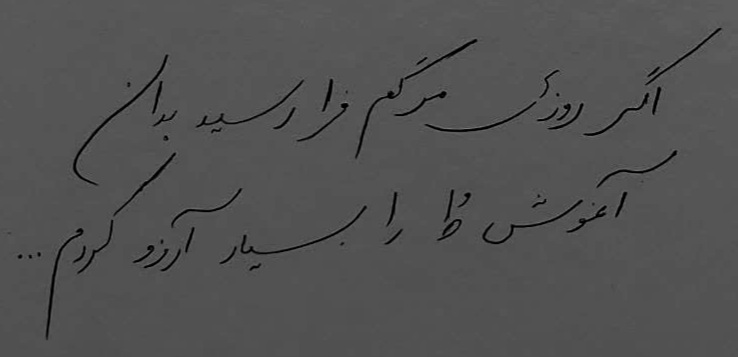 اگر روزی مرگم فرا رسید بدان
آغوش را بسیار آرزو کردم...